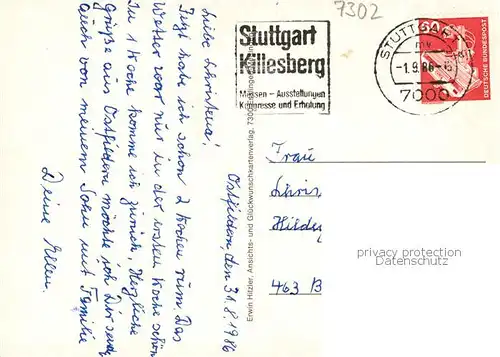 Ostfildern, den 31.8.1986
Liebe Christena!
Jetzt habe ich schon 2 Wochen rum. Das
Wetter war nur in der ersten Woche schön
In 1 Woche komme ich zurück. Herzliche
Grüße aus Ostfildern möchte ich Dir senden
auch von meinem Sohn mit Familie
Deine Ellen.
Erwin Hitzler, Ansichts- und Glückwunschkartenverlag, 7302
7302
Stuttgart
Killesberg
Messen – Ausstellungen
Kongresse und Erholung
STUTTGART
-1.9.86-
7000
60
DEUTSCHE BUNDESPOST
Frau
Chris
Hilde
463 B
privacy protection
Datenschutz